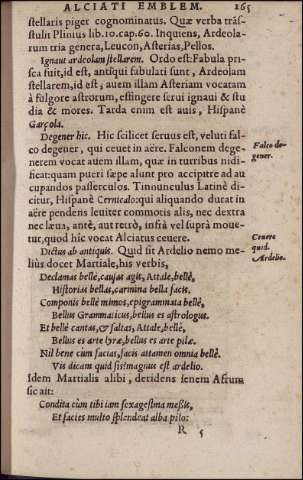 ALCIATI EMBLEM. 265
stellaris piget cognominatus. Quæ verba trãs-
stulit Plinius lib.10.cap.60. Inquiens, Ardeola-
rum tria genera, Leucon, Asterias, Pellos.
Ignaut ardeolam stellarem. Ordo est: Fabula pri-
sca fuit, id est, antiqui fabulati sunt, Ardeolam
stellarem, id est, auem illam Asteriam vocatam
à fulgore astrorum, effingere serui ignaui & stu
dia & mores. Tarda enim est auis, Hispanè
Garçola.
Degener hic. Hic scilicet seruus est, veluti fal-
co degener, qui ceuet in aëre. Falconem dege-
nerem vocat auem illam, quæ in turribus nidi-
ficat: quam pueri sæpe alunt pro accipitre ad au
cupandos passerculos. Tinunculus Latinè di-
citur, Hispanè Cernicalo: qui aliquando durat in
aëre pendens leuiter commotis alis, nec dextra
nec læua, antè, aut retrò, infrà vel suprà moue-
tur, quod hîc vocat Alciatus ceuere.
Dictus ab antiquis. Quid sit Ardelio nemo me-
liùs docet Martiale, his verbis,
Declamas bellè, causas agis, Attale, bellè,
Historias bellas, carmina bella facis.
Componis bellè mimos, epigrammata bellè,
Bellus Grammaticus, bellus es astrologus.
Et bellè cantas, & saltas, Attale, bellè,
Bellus es arte lyræ, bellus es arte pilæ.
Nil bene cùm facias, facis attamen omnia bellè.
Vis dicam quid sis? magnus es ardelio.
Idem Martialis alibi, deridens senem Afrum
sic ait:
Condita cùm tibi iam sexagesima meßis,
Et facies multo splendeat alba pilo:
R 5
Falco de-
gener.
Ceuere
quid.
Ardelio.